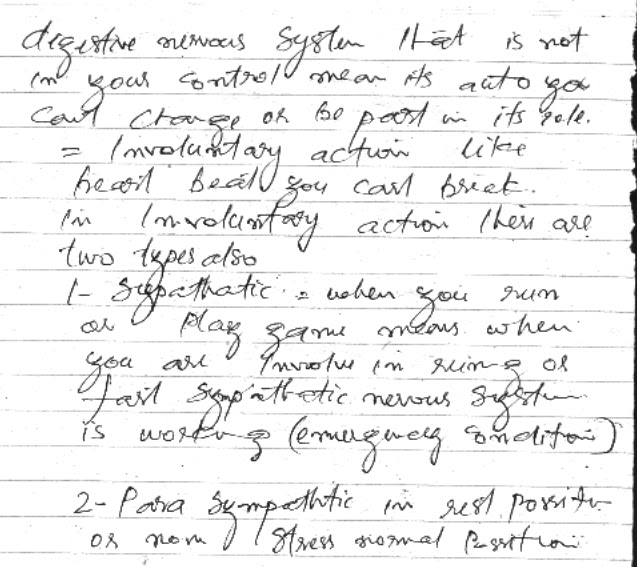 digestive nervous System that is not
in your control mean its auto you
cant change or be part in its role.
= Involuntary action like
heart beat you cant break.
in Involuntary action their are
two types also
1- Sypathatic = when you run
or play game means when
you are Involve in runing or
fast Sympathetic nervous System
is working (emergency condition)
2- Para Sympathtic in rest
or non Stress normal Position